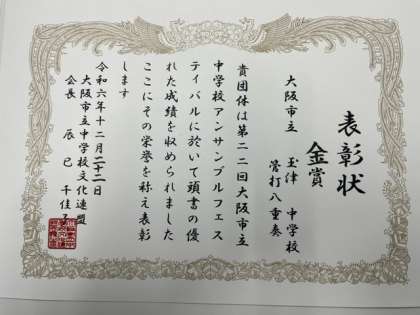 表彰状
金賞
大阪市立 玉津 中学校
管打八重奏
貴団体は第二二回大阪市立
中学校アンサンブルフェス
ティバルに於いて頭書の優
れた成績を収められました
ここにその栄誉を称え表彰
します
令和六年十二月二十二日
大阪市立中学校文化連盟
会長 辰巳 千佳